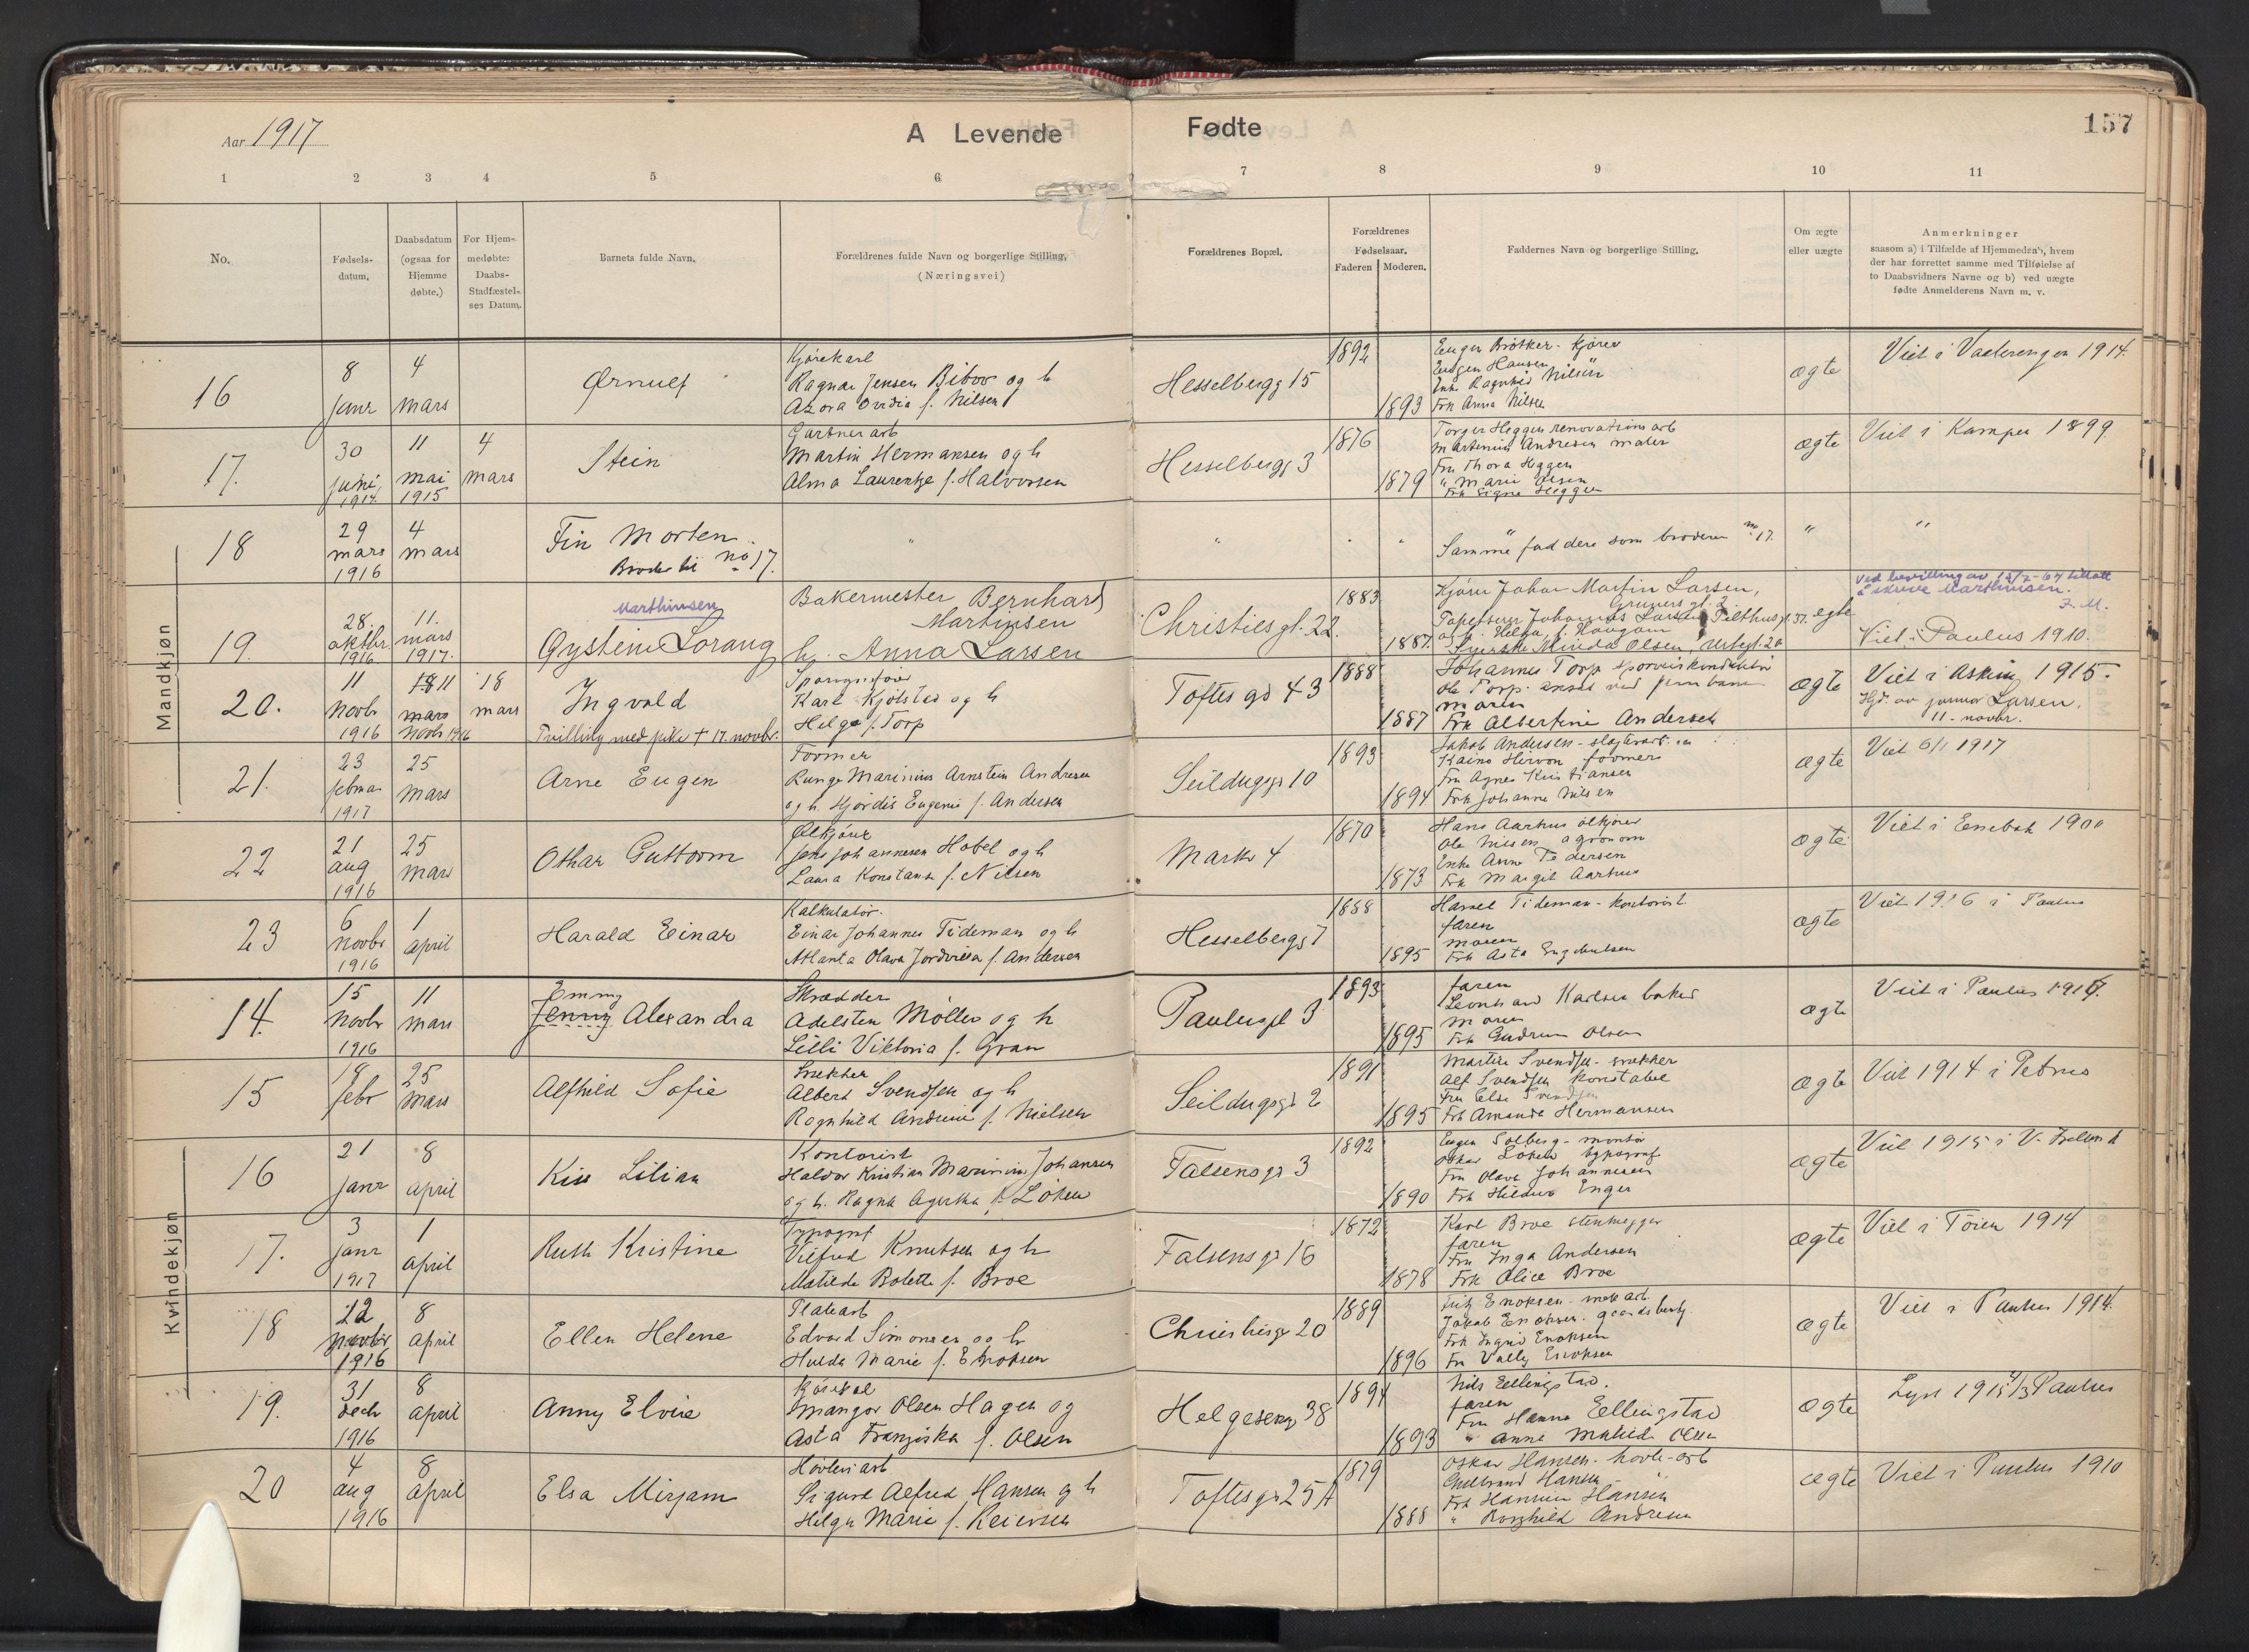 Aar 1917
A Levende
Fødte
157
1 2 3 4 5 6 7 8 9 10 11
No.
Fødsels-
datum.
Daabsdatum
(ogsaa for
Hjemme
døbte.)
For Hjem-
medøbte:
Daabs-
Stadfæstel-
ses Datum.
Barnets fulde Navn.
Forældrenes fulde Navn og borgerlige Stilling,
(Næringsvei)
Forældrenes Bopæl.
Forældrenes
Fødselsaar.
Faderen Moderen.
Faddernes Navn og borgerlige Stilling.
Om ægte
eller uægte
Anmerkninger
saasom a) i Tilfælde af Hjemmedaab, hvem
der har forrettet samme med Tilføielse af
to Daabsvidners Navne og b) ved uægte
fødte Anmelderens Navn m. v.
Mandkjøn
16
8
janr
4
mars
Ørnulf
Kjørekarl
Ragnar Jensen Bibow og h
Azora Ovidia f. Nilsen
Hesselbergg 15
1892
1893
Eugen Hansen
Enke Ragnhild Nilsen
Frk Anna Nilsen
ægte
Viet i Vaalerengen 1914.
17.
30
juni
1914.
11
mai
1915
4
mars
Stein
Gartnerarb
Martin Hermansen og h
Alma Laurentze f. Halvorsen
Hesselbergg 3
1876
1879
Torger Heggen renovationsarb
Martinius Andresen maler
Fru Thora Heggen
" Marie Olsen
Frk Signe Heggen
ægte
Viet i Kampen 1899
18
29
mars
1916
4
mars
Fin Morten.
Broder til No 17.
"
"
"
"
Samme faddere som broderen no 17.
"
"
19.
28.
oktbr.
1916.
11.
mars
1917.
Marthinsen
Øystein Lorang
Bakermester Bernhard
Martinsen
h. Anna Larsen
Christies gt. 22.
1883
1887.
Kjører Johan Martin Larsen,
Grünersgt. 2
Tapetserer Johannes Larsen Tilthusgt. 37.
og h. Helga f. Haugom
Syerske Minda Olsen, Urtegt. 20
ægte
Ved bevilling av 12/2-64 tillatt
å skrive Marthinsen.
Z.M.
Viet i Paulus 1910.
20.
11
Novbr
1916
11
mars
Novb 1916
18
mars
Ingvald
Tvilling med pike + 17. novbr.
Karl Kjölsted og h
Helga f. Torp
Toftes gd 43
1888
1887
Johannes Torp sporveiskonduktör
Ole Torp. ansat ved jernbanen
moren
Frk Albertine Andersen
ægte
Viet i Askim 1915.
Hjd. av jormor Larsen.
11. novbr.
21.
23
februar
1917
25
Mars
Arne Eugen
Former
Runge Marinius Arnstein Andresen
og h. Hjördis Eugenie f. Andersen
Seildugsg 10
1893
1894
Jakob Andersen
Fru Agnes Kristiansen
Frk Johanne Nilsen
ægte
Viet 6/1 1917
22
21
aug
1916
25
mars
Othar Guttorm
Ølkjörer
Jens Johannesen Hobel og h
Laura Konstanse f. Nilsen
Markv 4
1870
1873
Hans Aarhus ølkjører
Ole Nilsen agronom
Enke Anne Pedersen
Frk Margit Aarhus
ægte
Viet i Enebak 1900
23
6
Novbr
1916
1
april
Harald Einar
Kalkulatør.
Einar Johannes Tideman og h
Atlanta Olava Jordvina f. Andersen
Hesselbergg 7
1888
1895
Harald Tideman - kontorist
faren
moren
Frk Asta Engebretsen
ægte
Viet 1916 i Paulus
Kvindekjøn
14.
15
Novbr
1916
11
mars
Emmy
Jenny Alexandra
Skrædder
Adelsten Møller og h
Lilli Viktoria f. Gran
Pauluspl 3
1893
1895
faren
Leonhard Karlsen baker
Moren
Frk Gudrun Olsen
ægte
Viet i Paulus 1916.
15
18
febr
25
Mars
Alfhild Sofie
Snekker
Albert Svendsen og h
Ragnhild Andrine f. Nielsen
Seildugsgt 2
1891
1895
Martin Svendsen - snekker
Alf Svendsen konstabel
Fru Else Svendsen
Frk Amanda Hermansen
ægte
Viet 1914 i Petrus
16
21
janr
8
april
Kiss Lilian
Kontorist
Haldor Kristian Marinius Johansen
og h. Ragna Agertha f. Löken
Falsensg 3
1892
1890
Eugen Solberg - montør
Oskar Löken typograf
Fru Olava Johannesen
Frk Hildur Enger
ægte
Viet 1915 i V. Frelsers k
17.
3
janr
1917
1
april
Ruth Kristine
Typograf
Vilfred Knutsen og h
Matilde Bolette f. Broe
Falsensg 16
1872
1878
Karl Broe stenhugger
faren
Fru Inga Andersen
Frk Alice Broe
ægte
Viet i Töien 1914
18
12
Novbr
1916
8
april
Ellen Helene
Platearb
Edvard Simonsen og h
Hulda Marie f. Enoksen
Christiesg 20
1889
1896
Fritz Enoksen - mek arb.
Jakob Enoksen. gaardsbest.
Frk Ingrid Enoksen
Fru Vally Enoksen
ægte
Viet i Paulus 1914.
19.
31
decb
1916
8
april
Anny Elvire
Mangor Olsen Hagen og
Asta Franziska f. Olsen
Helgesensg 38
1894
1893
Nils Ellingstad.
faren
Fru Hanna Ellingstad
" Anne Mathilde Olsen
ægte
Lyst 1915 4/3 Paulus
20
4
aug
1916
8
april
Elsa Mirjam
Høvleriarb
Sigurd Alfred Hansen og h
Helga Marie f. Reiersen
Toftesg 25 A
1879
1888
Oskar Hansen - hovleriarb
Gulbrand Hansen - "
Frk Hansine Hansen
" Ragnhild Andresen
ægte
Viet i Paulus 1910